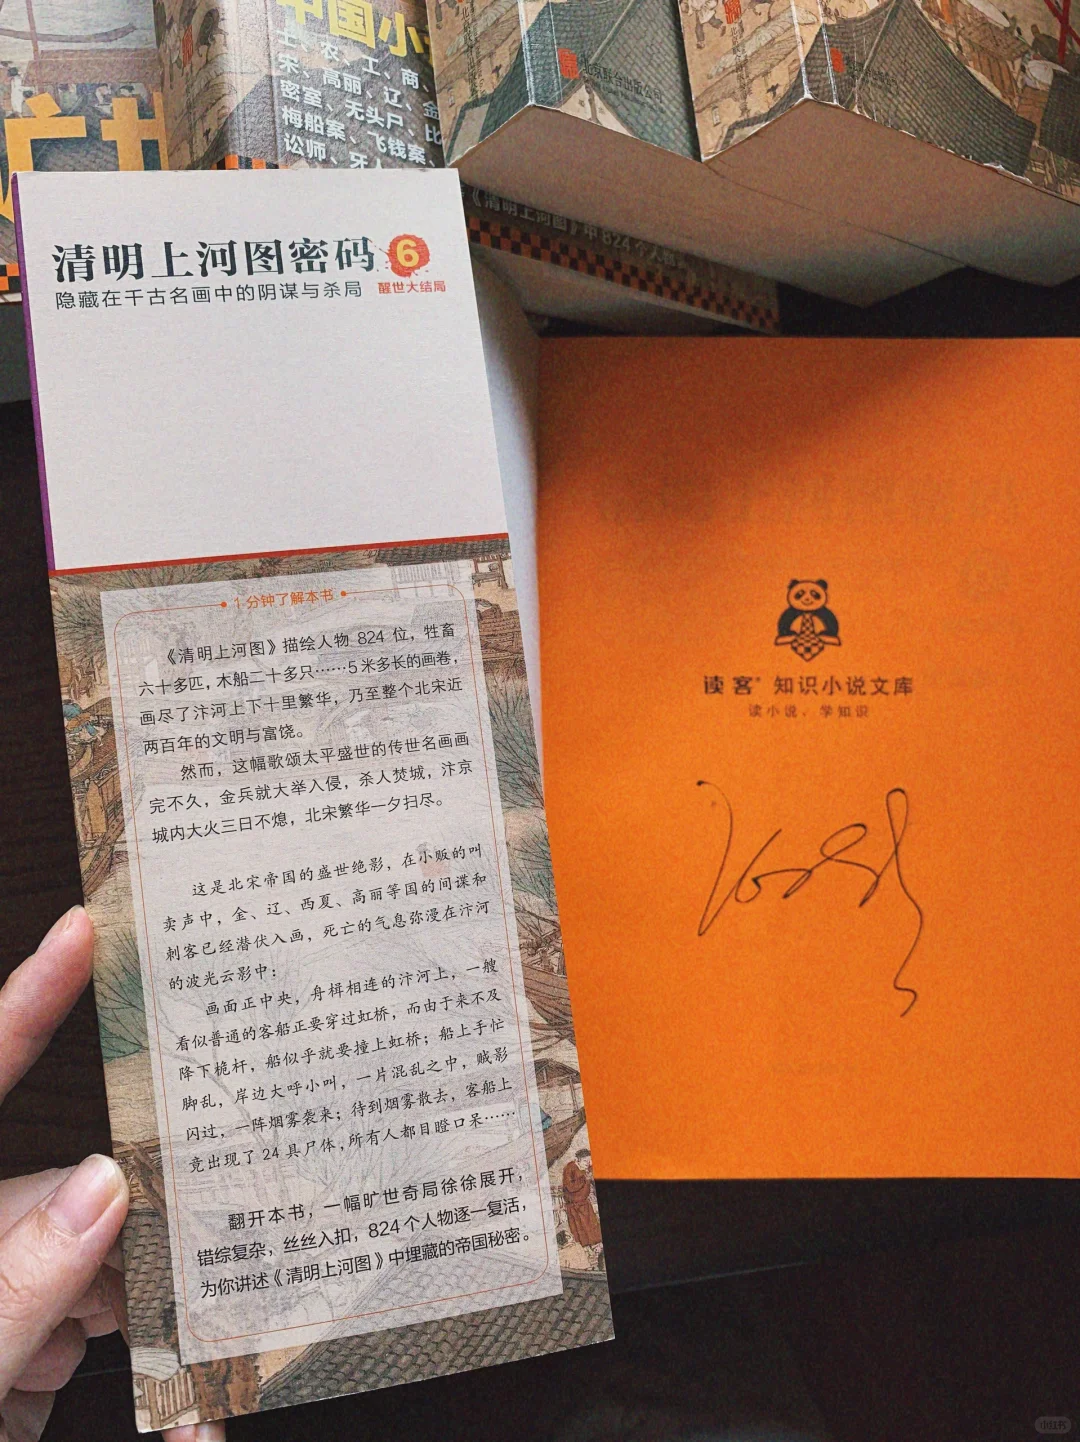 中国小
士、农、工、商、
宋、高丽、辽、金
密室、无头尸、比
梅船案、飞钱案、
讼师、牙人
北京联合出版公司
《清明上河图》中824个人物
清明上河图密码 6
隐藏在千古名画中的阴谋与杀局 醒世大结局
1分钟了解本书
《清明上河图》描绘人物 824 位，牲畜
六十多匹，木船二十多只……5 米多长的画卷，
画尽了汴河上下十里繁华，乃至整个北宋近
两百年的文明与富饶。
然而，这幅歌颂太平盛世的传世名画画
完不久，金兵就大举入侵，杀人焚城，汴京
城内大火三日不熄，北宋繁华一夕扫尽。
这是北宋帝国的盛世绝影，在小贩的叫
卖声中，金、辽、西夏、高丽等国的间谍和
刺客已经潜伏入画，死亡的气息弥漫在汴河
的波光云影中：
画面正中央，舟楫相连的汴河上，一艘
看似普通的客船正要穿过虹桥，而由于来不及
降下桅杆，船似乎就要撞上虹桥；船上手忙
脚乱，岸边大呼小叫，一片混乱之中，贼影
闪过，一阵烟雾袭来；待到烟雾散去，客船上
竟出现了 24 具尸体，所有人都目瞪口呆……
翻开本书，一幅旷世奇局徐徐展开，
错综复杂，丝丝入扣，824 个人物逐一复活，
为你讲述《清明上河图》中埋藏的帝国秘密。
读客® 知识小说文库
读小说，学知识
小红书